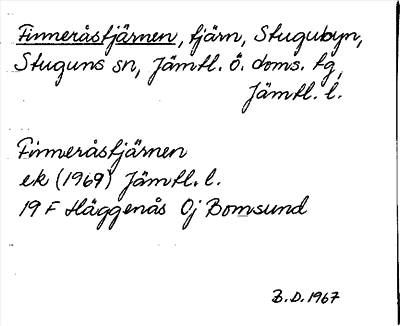 Finneråstjärnen, tjärn, Stugubyn,
Stuguns sn, Jämtl. Ö. doms. tg,
Jämtl. l.
Finneråstjärnen
ek (1969) Jämtl. l.
19 F Häggenås Oj Bomsund
B.D. 1967